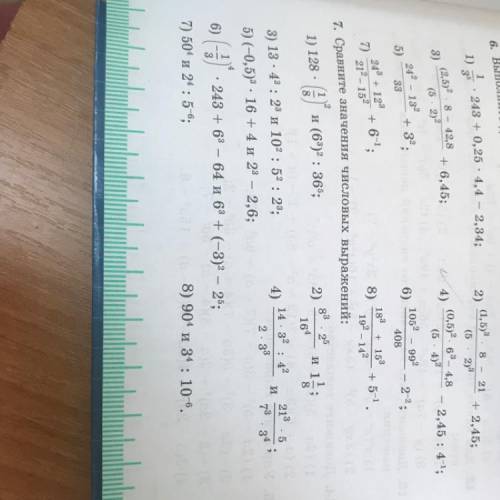 6. Выполните
1) 1/3³ · 243 + 0,25 · 4,4 − 2,34;
2) ((1,5)³ · 8 − 21)/(5 · 2)³ + 2,45;
3) ((2,5)² · 8 − 42,8)/(5 · 2)² + 6,45;
4) ((0,5)² · 6³ − 4,8)/(5 · 4)² − 2,45 : 4⁻¹;
5) (24² − 13²)/33 + 3³;
6) (105² − 99²)/408 − 2⁻²;
7) (24³ + 12³)/(21² − 15²) + 6⁻¹;
8) (18³ + 15³)/(19² − 14²) + 5⁻¹.
7. Сравните значения числовых выражений:
1) 128 · (1/8)² и (6³)² : 36³;
2) (8³ · 2⁵)/16⁴ и 1 1/8;
3) 13 · 4³ : 2³ и 10² : 5² : 2³;
4) (14 · 3² : 4²)/(2 · 3³) и (21³ · 5)/(7³ · 3⁴);
5) (−0,5)³ · 16 + 4 и 2³ − 2,6;
6) (−1/3)⁴ · 243 + 6³ − 64 и 6³ + (−3)² − 2⁵;
7) 50⁴ и 2⁴ : 5⁻⁶;
8) 90⁴ и 3⁴ : 10⁻⁶.